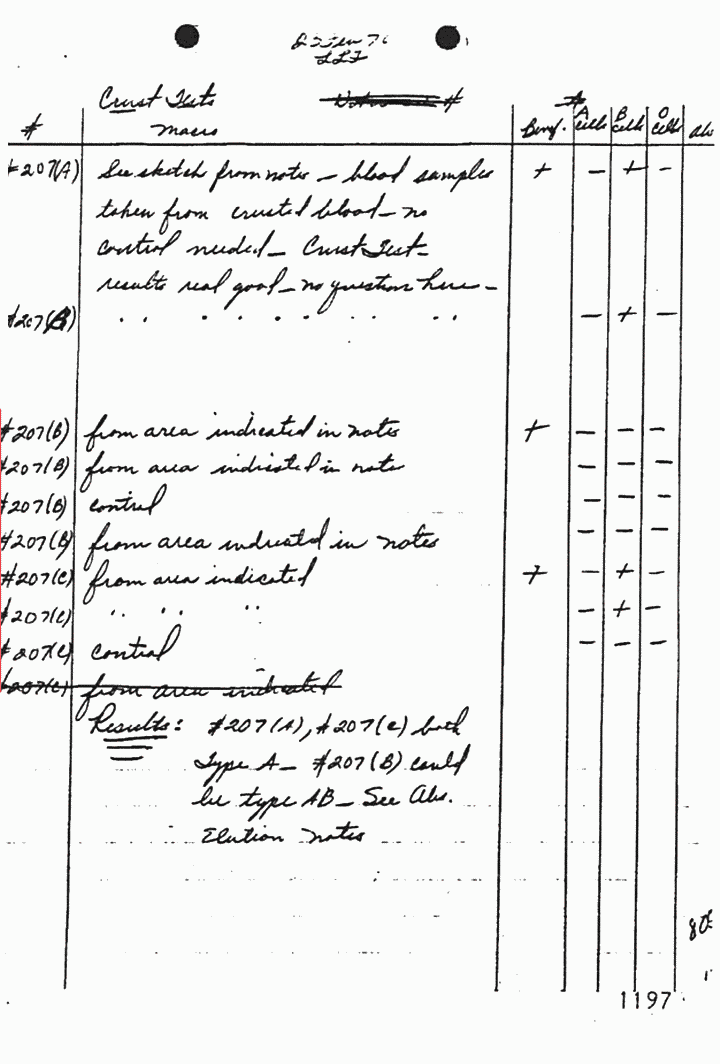 Crust Tests #
# macro Benz. A cells B cells O cells abs
#207(A) See sketch from notes — blood samples + — + —
taken from crusted blood — no
control needed — Crust Test —
results real good — no question here —
#207(B) " " " " " " " — + —
#207(B) from area indicated in notes + — — —
#207(B) from area indicated in note — — —
#207(B) control — — —
#207(B) from area indicated in notes — — —
#207(C) from area indicated + — + —
#207(C) " " " — + —
#207(C) control — — —
#207(C) from area indicated
Results: #207(A), #207(C) both
Type A — #207(B) could
be type AB — See Abs.
Elution notes
1197